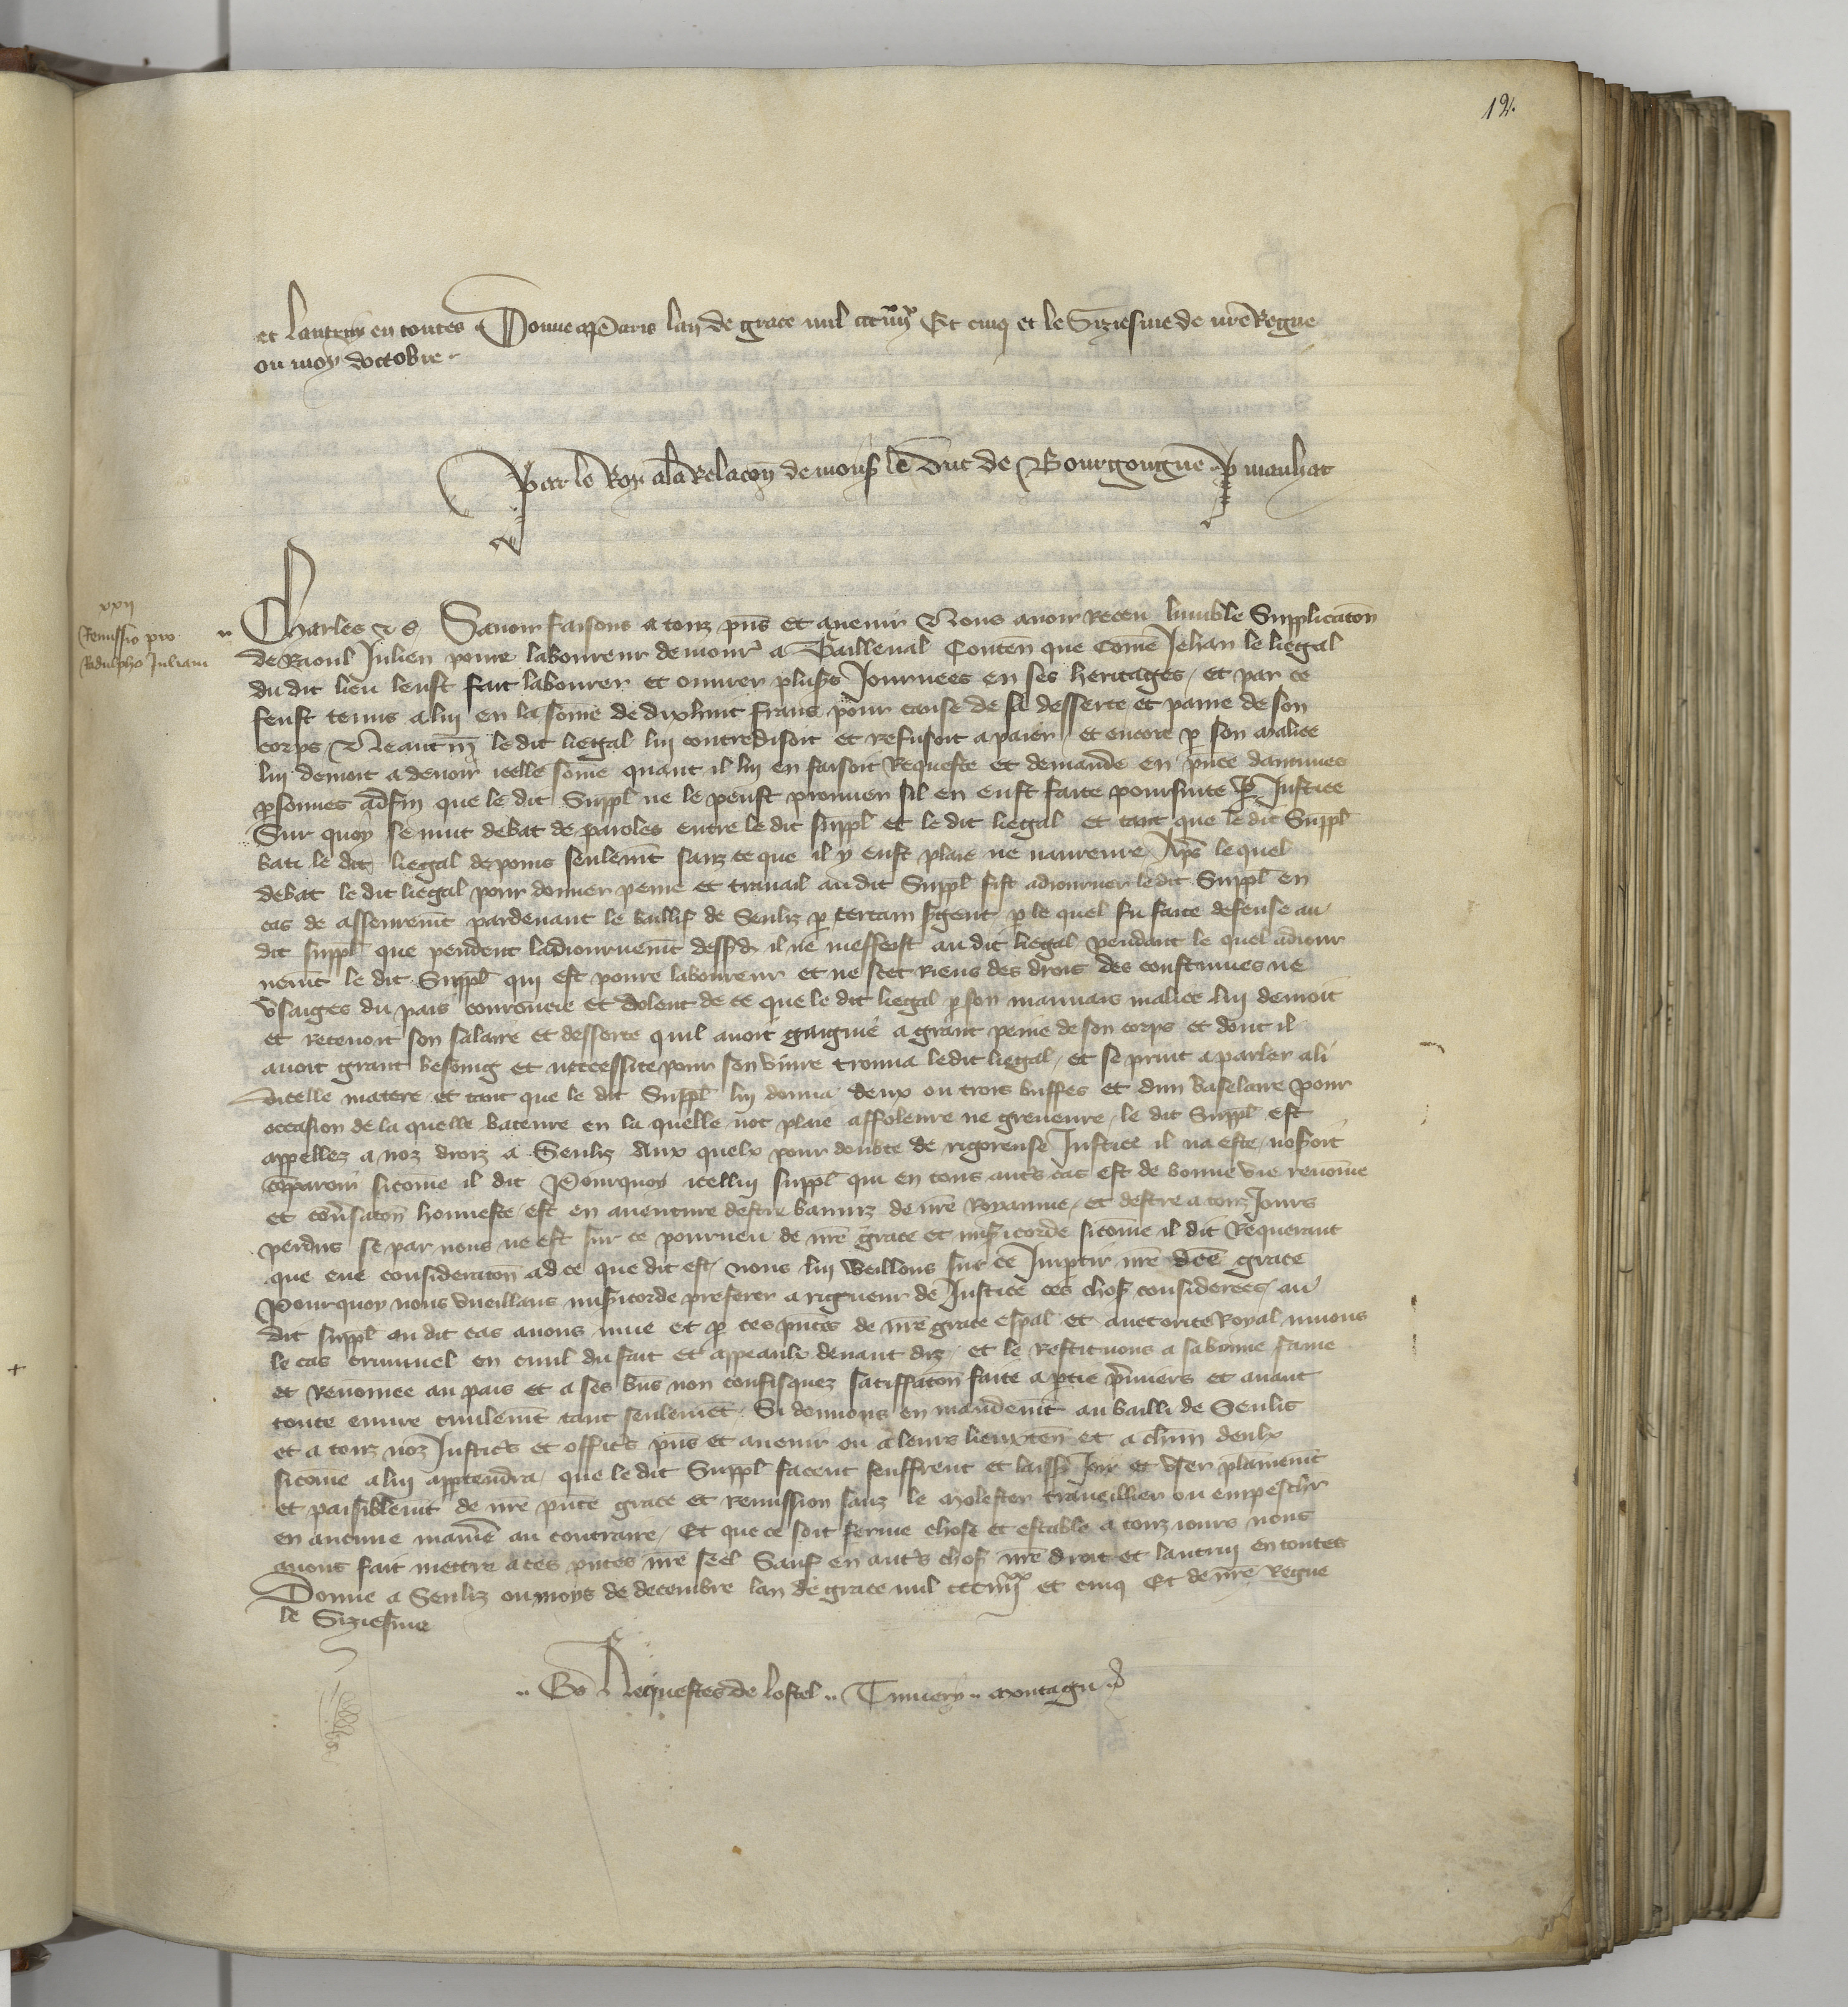 12.
et lautruy en toutes Donne a Paris lan de grace mil ccciiijxx Et cinq et le Siziesme de nre Regne
ou moys doctobre
Par le Roy a la Relacon de mons le Duc de Bourgongne p manhac
xxij
Remissio pro
Radulpho Juliani
Charles &c Savoir faisons a touz pns et avenir Nous avoir receu lumble Supplicaton
de Raoul Julien povre laboureur demour a Bailleval Conten que Come Jehan le liegal
du dit lieu leust fait labourer et ouvrer plus Journees en ses heritages et par ce
feust tenus a lui en la some de dixhuit frans pour cause de sa desserte et paine de son
corps Neantm le dit liegal lui contredisoit et refusoit a paier et encore p son malice
lui denioit a devoir icelle some quant il lui en faisoit Requeste et demande en pnce daucunes
psonnes adfin que le dit Suppl ne le peust prouver sil en eust faite poursuite p Justice
Sur quoy se mut debat de paroles entre le dit suppl et le dit liegal et tant que le dit Suppl
bati le dit liegal de poins seulemt sanz ce que il y eust plaie ne navreure Aps lequel
debat le dit liegal pour donner peine et travail au dit Suppl fist adiourner ledit Suppl en
cas de asseuremt pardevant le baillif de Senliz p certain sgent p le quel fu faite defense au
dit suppl que pendent ladiournemt dessd il ne meffeist au dit liegal pendant le quel adiour
nemt le dit Suppl qui est povre laboureur et ne scet riens des drois des coustumes ne
usaiges du pais couroucie et dolent de ce que le dit liegal p son mauvais malice lui denioit
et retenoit son salaire et desserte quil avoit gaignie a grant peine de son corps et dont il
avoit grant besoing et neccessite pour son vivre trouva ledit liegal et se print a parler a li
dicelle matere et tant que le dit Suppl lui donna deux ou trois buffes et dun baselaire pour
occasion de la quelle bateure en la quelle not plaie affoleure ne greveure le dit Suppl est
appellez a noz droiz a Senliz Aux quelx pour doubte de rigoreuse Justice il na este nosoit
coparoir sicome il dit Pourquoy icellui suppl qui en tous auts cas est de bonne vie renome
et convsaton honneste est en aventure destre banniz de nre Royaume et destre a touz Jours
perdus se par nous ne est sur ce pourveu de nre grace et misicorde sicome il dit Requerant
que eue consideraton ad ce que dit est nous lui veillons sur ce Imptir nre dce grace
Pourquoy nous vueillans misicorde preferer a rigueur de Justice ces chos considerees au
dit suppl ou dit cas avons mue et p ces pntes de nre grace espal et auctorite Royal muons
le cas criminel en civil du fait et appeaulx devant diz et le Restituons a sa bonne fame
et Renomee au pais et a ses bns non confisquez satiffaton faite a ptie pmiers et avant
toute euvre civilemt tant seulemet Si donnons en mandemt au bailli de Senlis
et a touz noz Justics et offics pns et avenir ou a leurs lieuxten et a chun deulx
sicome a lui apptendra que le dit Suppl facent seuffrent et laiss Joir et user plainemt
et paisiblemt de nre pnte grace et remission sanz le molester traveillier ou empeschr
en aucune maniē au contraire Et que ce soit ferme chose et estable a touz iours nous
avons fait mettre a ces pntes nre seel Sauf en auts chos nre droit et lautrui en toutes
Donne a Senliz ou moys de decembre lan de grace mil ccciiijxx et cinq Et de nre Regne
le Siziesme
Es Requestes de lostel montagu